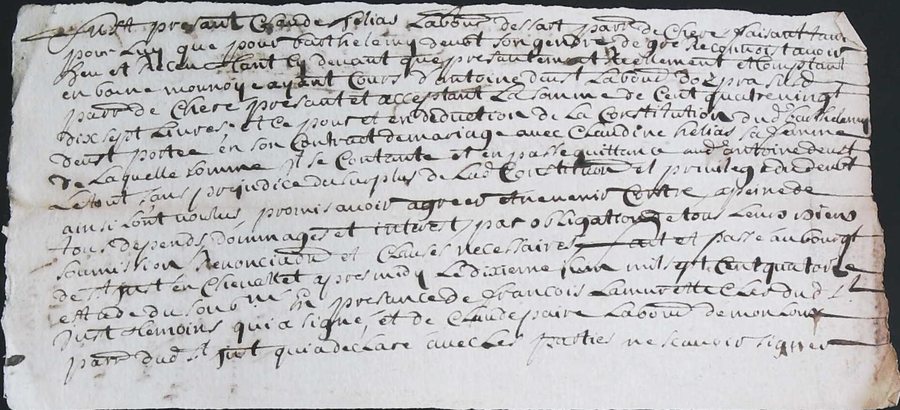 Fust present Claude helias Labour dessart parr de Chere faisant tant
pour Luy que pour barthelemy deust son gendre de gre Reconnoist avoir
heu et Receu tant cy devant que presentement Reellement et Comptant
en bonne monnoye ayant Cours d'antoine deust Labour
parr de Chere present et acceptant La somme de Cent quatre vingt
dix sept Livres et Ce pour et en deduction de La Constitution dud barthelemy
deust portee en son Contract de mariage avec Claudine helias sa femme
de Laquelle somme il se Contente et en passe quittance aud antoine deust
Le tout sans prejudice du surplus de Lad Constitution et privilege dud deust
ainsi Lont voulus promis avoir agreer et ne venir Contre a peine de
tous depends dommages et interest par obligation de tous Leurs biens
soumission Renonciation et Clauses necessaires fait et passe au bourgt
de st just en Chevallet apres midy Le dixieme juin mil sept Cent quatorze
en presance de francois Lamurette Clerc dud st
just temoins qui a signé et de Claude paire Labour de monloux
parr dud st just qui a declare avec Les parties ne scavoir signer